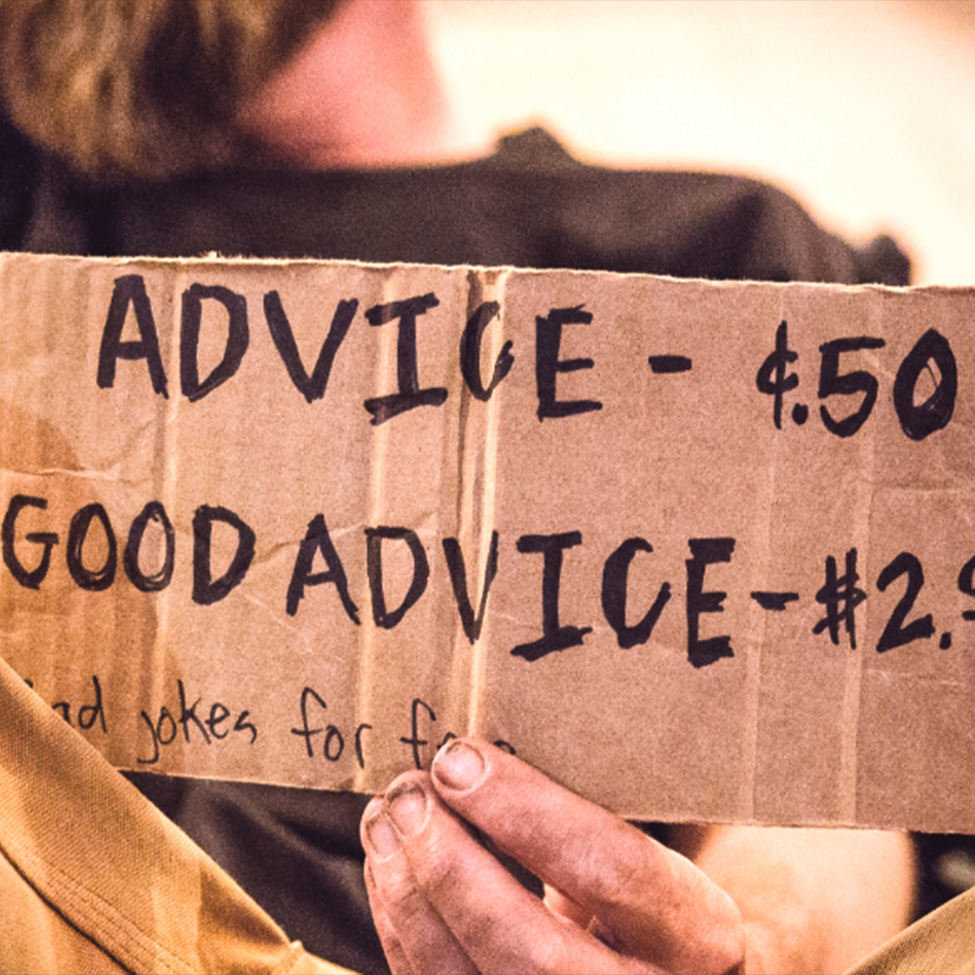 ADVICE - ¢.50
GOOD ADVICE - $2.
jokes for